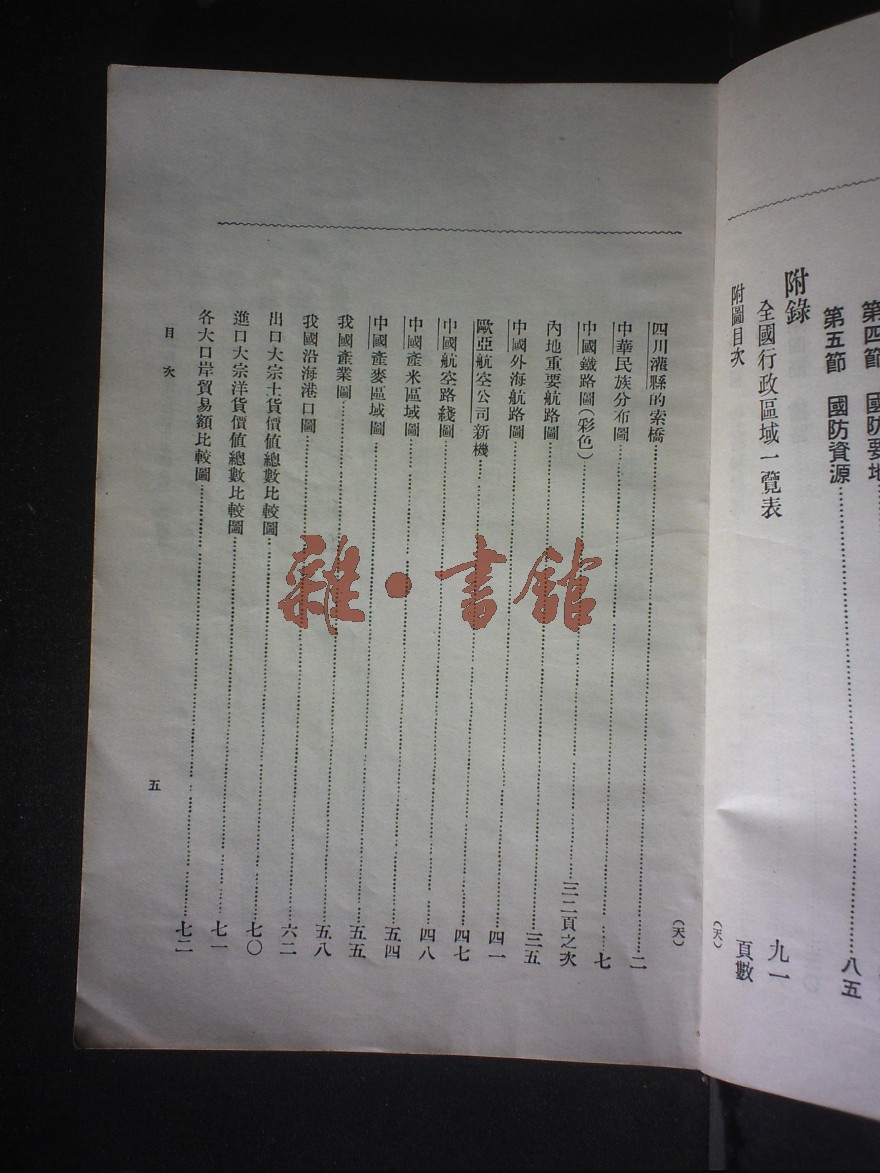 第四節　國防要地
第五節　國防資源……八五
附錄
全國行政區域一覽表　九一
附圖目次　頁數
(天)
(天)
四川灌縣的索橋……二
中華民族分布圖……七
中國鐵路圖(彩色)……三二頁之次
內地重要航路圖……三五
中國外海航路圖……四一
歐亞航空公司新機……四七
中國航空路綫圖……四八
中國產米區域圖……五四
中國產麥區域圖……五五
我國產業圖……五八
我國沿海港口圖……六二
出口大宗土貨價值總數比較圖……七〇
進口大宗洋貨價值總數比較圖……七一
各大口岸貿易額比較圖……七二
目次
五
雜·書館